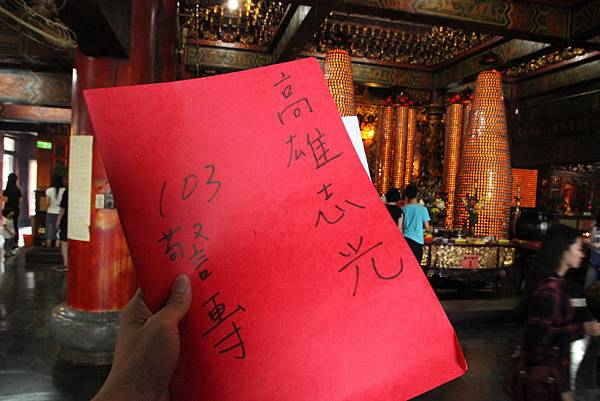 高雄志光
103警專